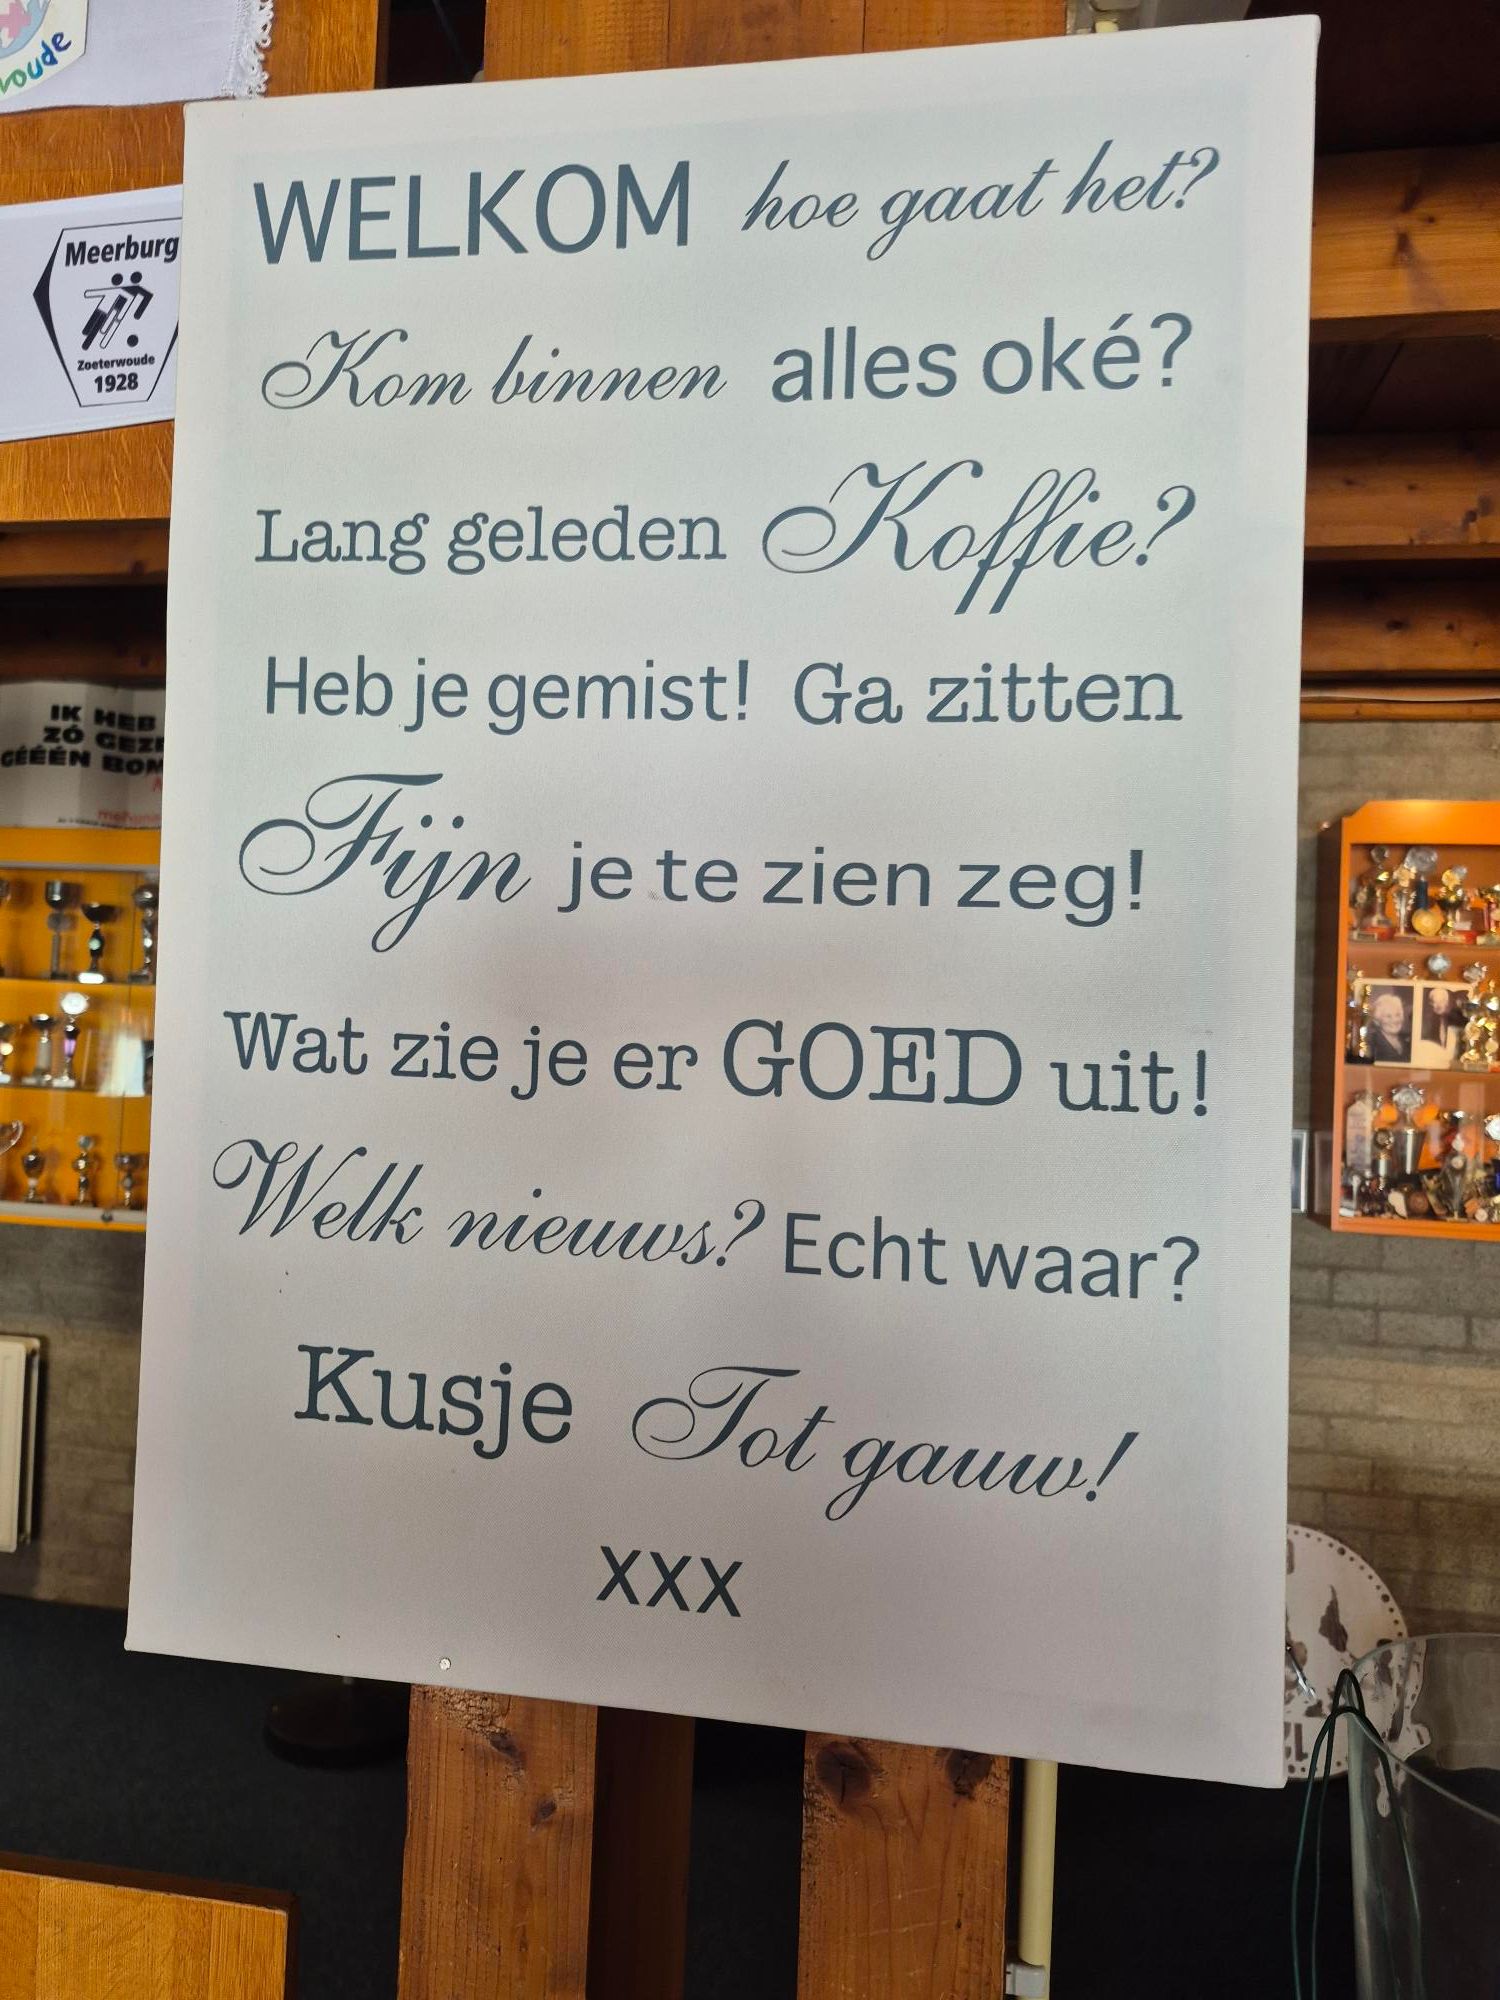 oude
Meerburg
Zoeterwoude
1928
WELKOM hoe gaat het?
Kom binnen alles oké?
Lang geleden Koffie?
Heb je gemist! Ga zitten
Fijn je te zien zeg!
Wat zie je er GOED uit!
Welk nieuws? Echt waar?
Kusje Tot gauw!
xxx
IK HEB
ZÓ GEZ
GÉÉÉN BOM